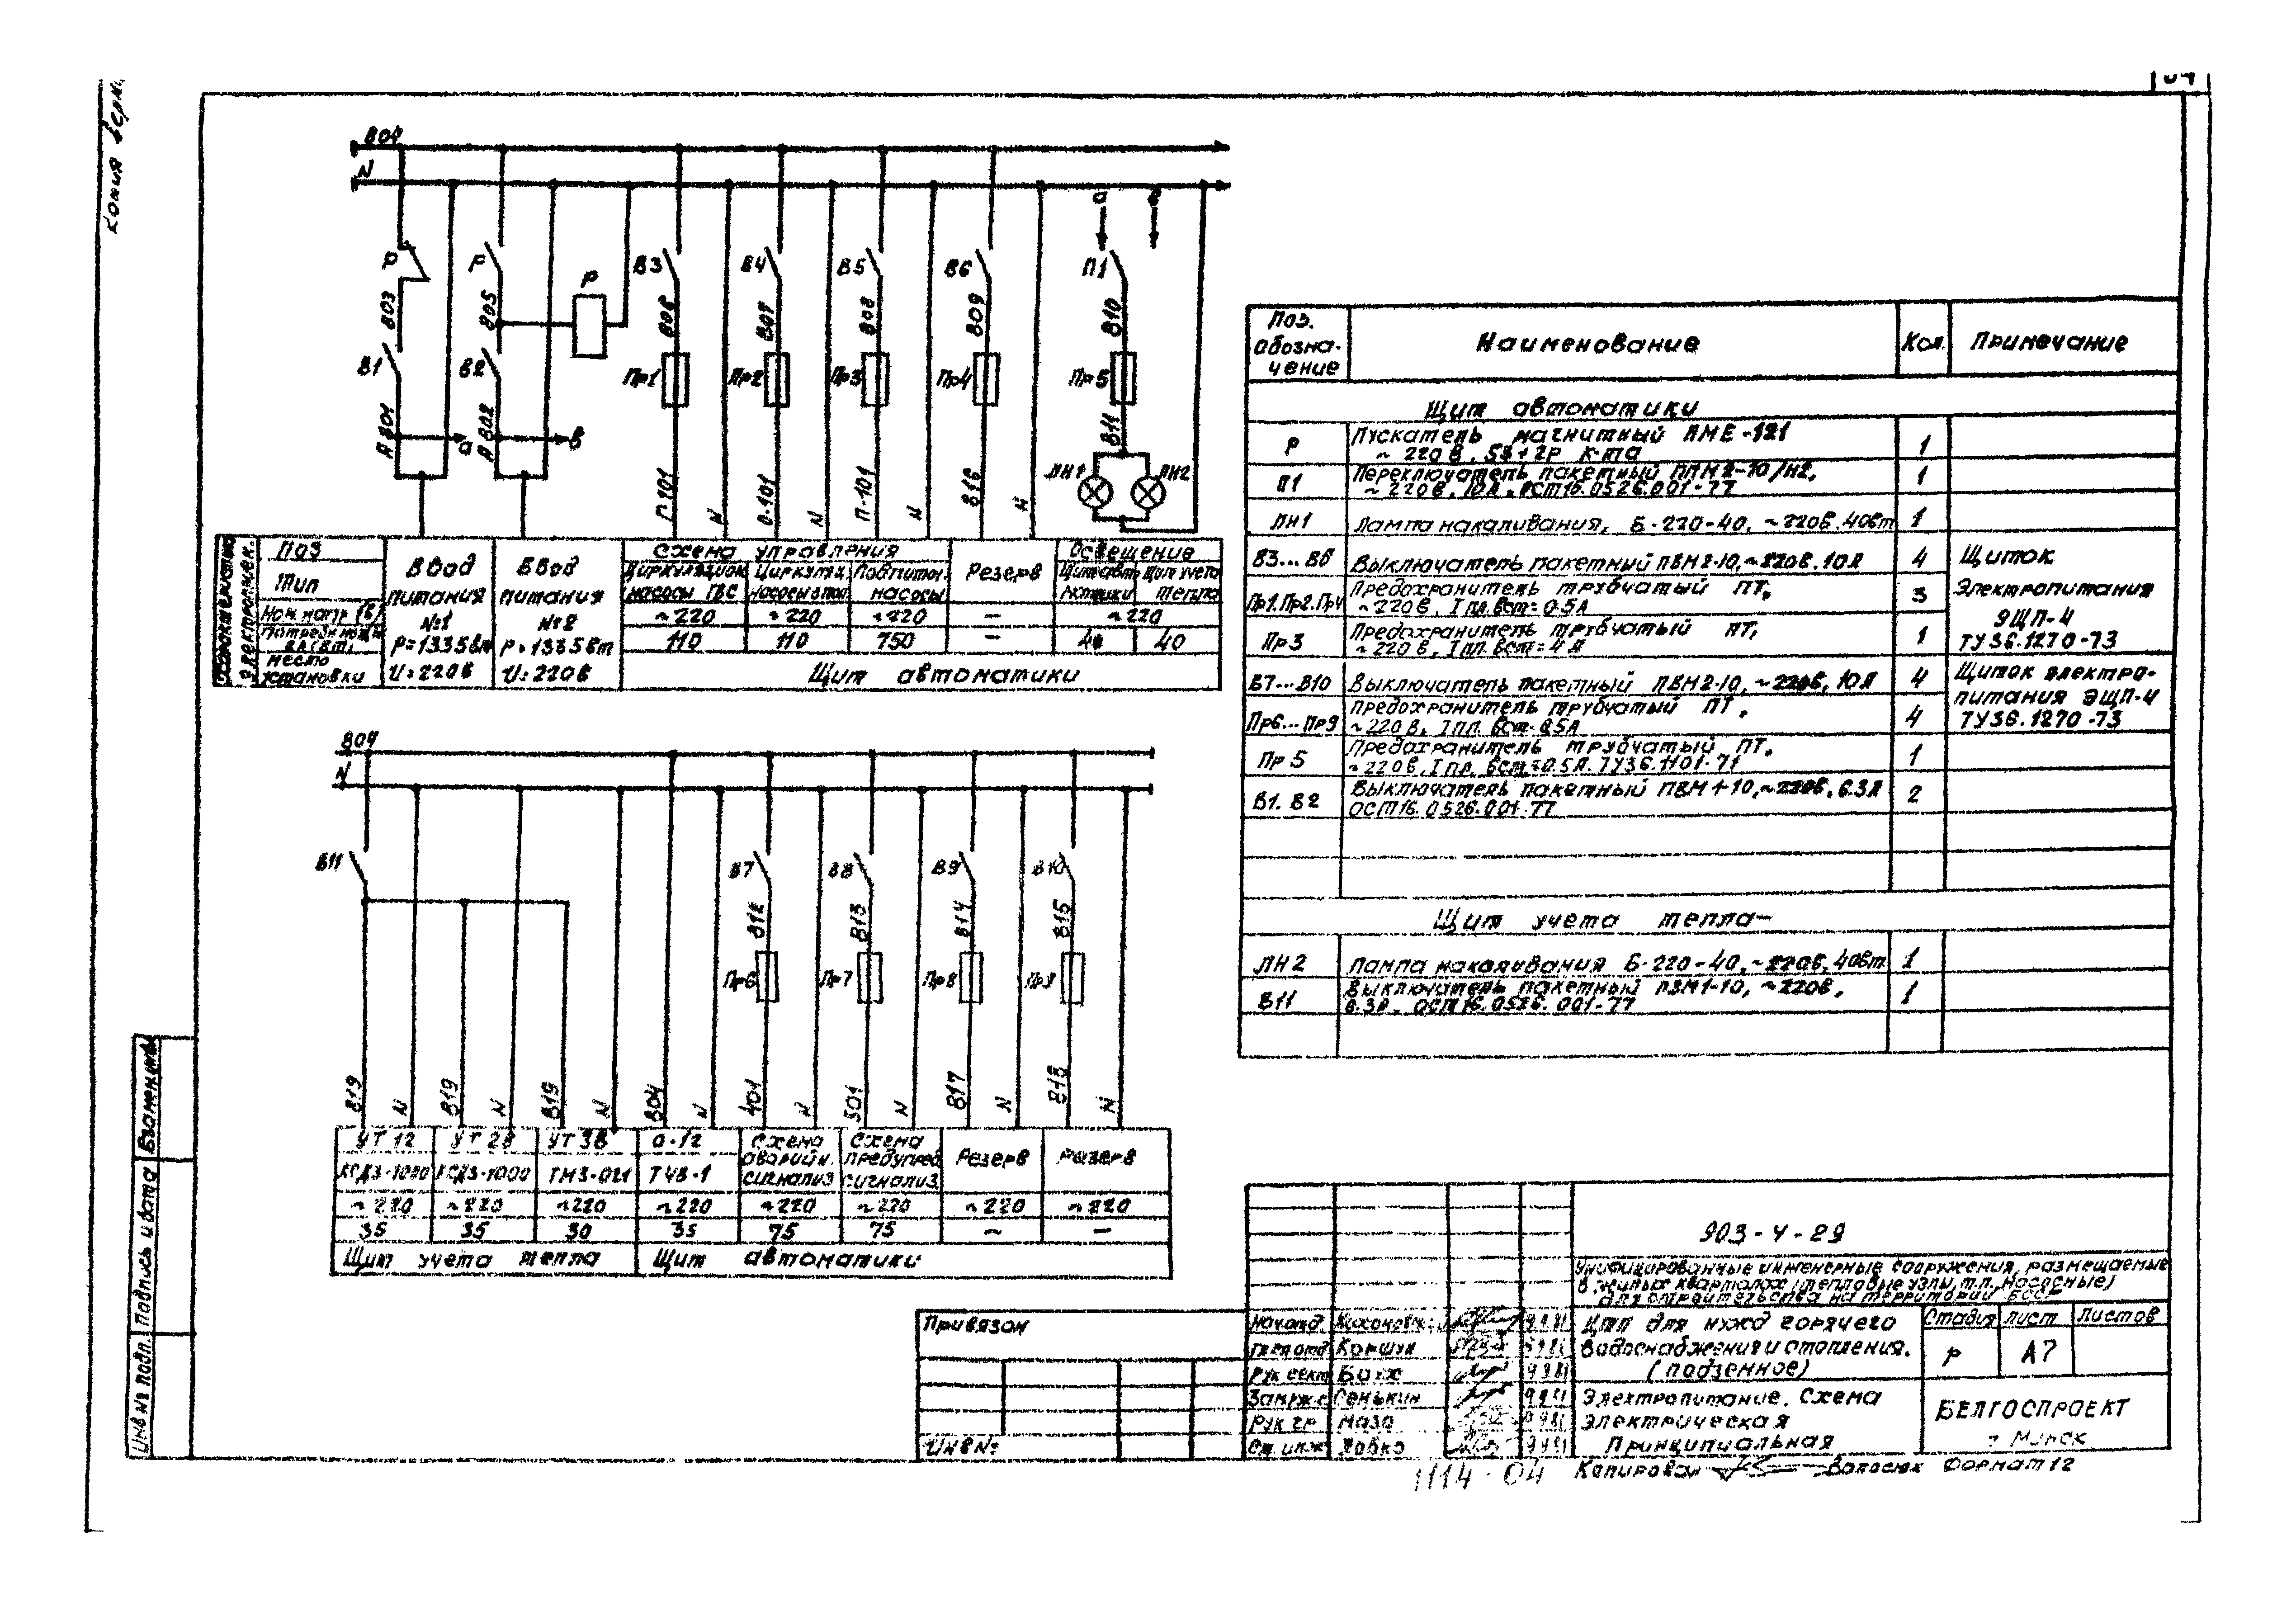 804
N
Р
Р
Р
803
805
В1
В2
А 801
А 802
а
в
В3
В4
В5
В6
П1
806
807
808
809
810
Пр1
Пр2
Пр3
Пр4
Пр5
811
ЛН1
ЛН2
П.101
N
О.101
N
П-101
N
816
N
а
в
Поз
Тип
место
установки
Ввод
питания
№1
Р=1335вт
U=220в
Ввод
питания
№2
Р=1335вт
U=220в
Схема управления
Циркуляцион.
насосы ГВС
Циркуляц.
Подпиточн.
насосы
Резерв
Освещение
Щит учета
тепла
~220
~220
~220
—
~220
110
110
750
—
40
40
Щит автоматики
804
N
В11
В7
В8
В9
В10
812
813
814
815
Пр6
Пр7
Пр8
Пр9
819
N
819
N
819
N
804
N
401
N
501
N
817
N
818
N
УТ 12
УТ 2в
УТ 3в
а-12
Схема
аварийн.
сигнализ
Схема
предупред
сигнализ.
Резерв
Резерв
КСД3-1000
КСД3-1000
ТМЗ-021
ТЧВ-1
~220
~220
~220
~220
~220
~220
~220
~220
35
35
30
35
75
75
—
—
Щит учёта тепла
Щит автоматики
Поз.
обозна-
чение
Наименование
Кол.
Примечание
Щит автоматики
Р
Пускатель магнитный ПМЕ-121
~220в, 5з+2р к-та
1
П1
Переключатель пакетный ППМ2-10/Н2,
~220в, 10А, ОСТ16.0526.001-77
1
ЛН1
Лампа накаливания, Б-220-40, ~220в, 40вт
1
В3...В6
Выключатель пакетный ПВМ2-10, ~220в, 10А
4
Щиток
Пр1.Пр2.Пр4
Предохранитель трубчатый ПТ,
~220в, Iпл.вст=0.5А
3
Электропитания
ЭЩП-4
Пр3
Предохранитель трубчатый ПТ,
~220в, Iпл.вст=4А
1
ТУ36.1270-73
В7...В10
Выключатель пакетный ПВМ2-10, ~220в, 10А
4
Щиток электро-
питания ЭЩП-4
Пр6...Пр9
Предохранитель трубчатый ПТ,
~220в, Iпл.вст-0.5А
4
ТУ36.1270-73
Пр5
Предохранитель трубчатый ПТ.
~220в, Iпл.вст=0.5А. ТУ36.1101-71
1
В1. В2
Выключатель пакетный ПВМ1-10, ~220в, 6.3А
ОСТ16.0526.001-77
2
Щит учета тепла-
ЛН2
Лампа накаливания Б-220-40, ~220в, 40вт
1
В11
Выключатель пакетный ПВМ1-10, ~220в,
6.3А. ОСТ16.0526.001-77
1
903-4-29
Унифицированные инженерные сооружения, размещаемые
в жилых кварталах (тепловые узлы, т.п., насосные)
для строительства на территории БССР
ЦТП для нужд горячего
водоснабжения и отопления.
(подземное)
Стадия
Лист
Листов
Р
А7
Электропитание. Схема
электрическая
Принципиальная
БЕЛГОСПРОЕКТ
г Минск
Нач.отд
Коршун
Рук сект
Сенькин
Рук гр
Мазо
Ст. инж
Привязан
Инв №
Инв № подл.
Подпись и дата
Копировал
Формат 12